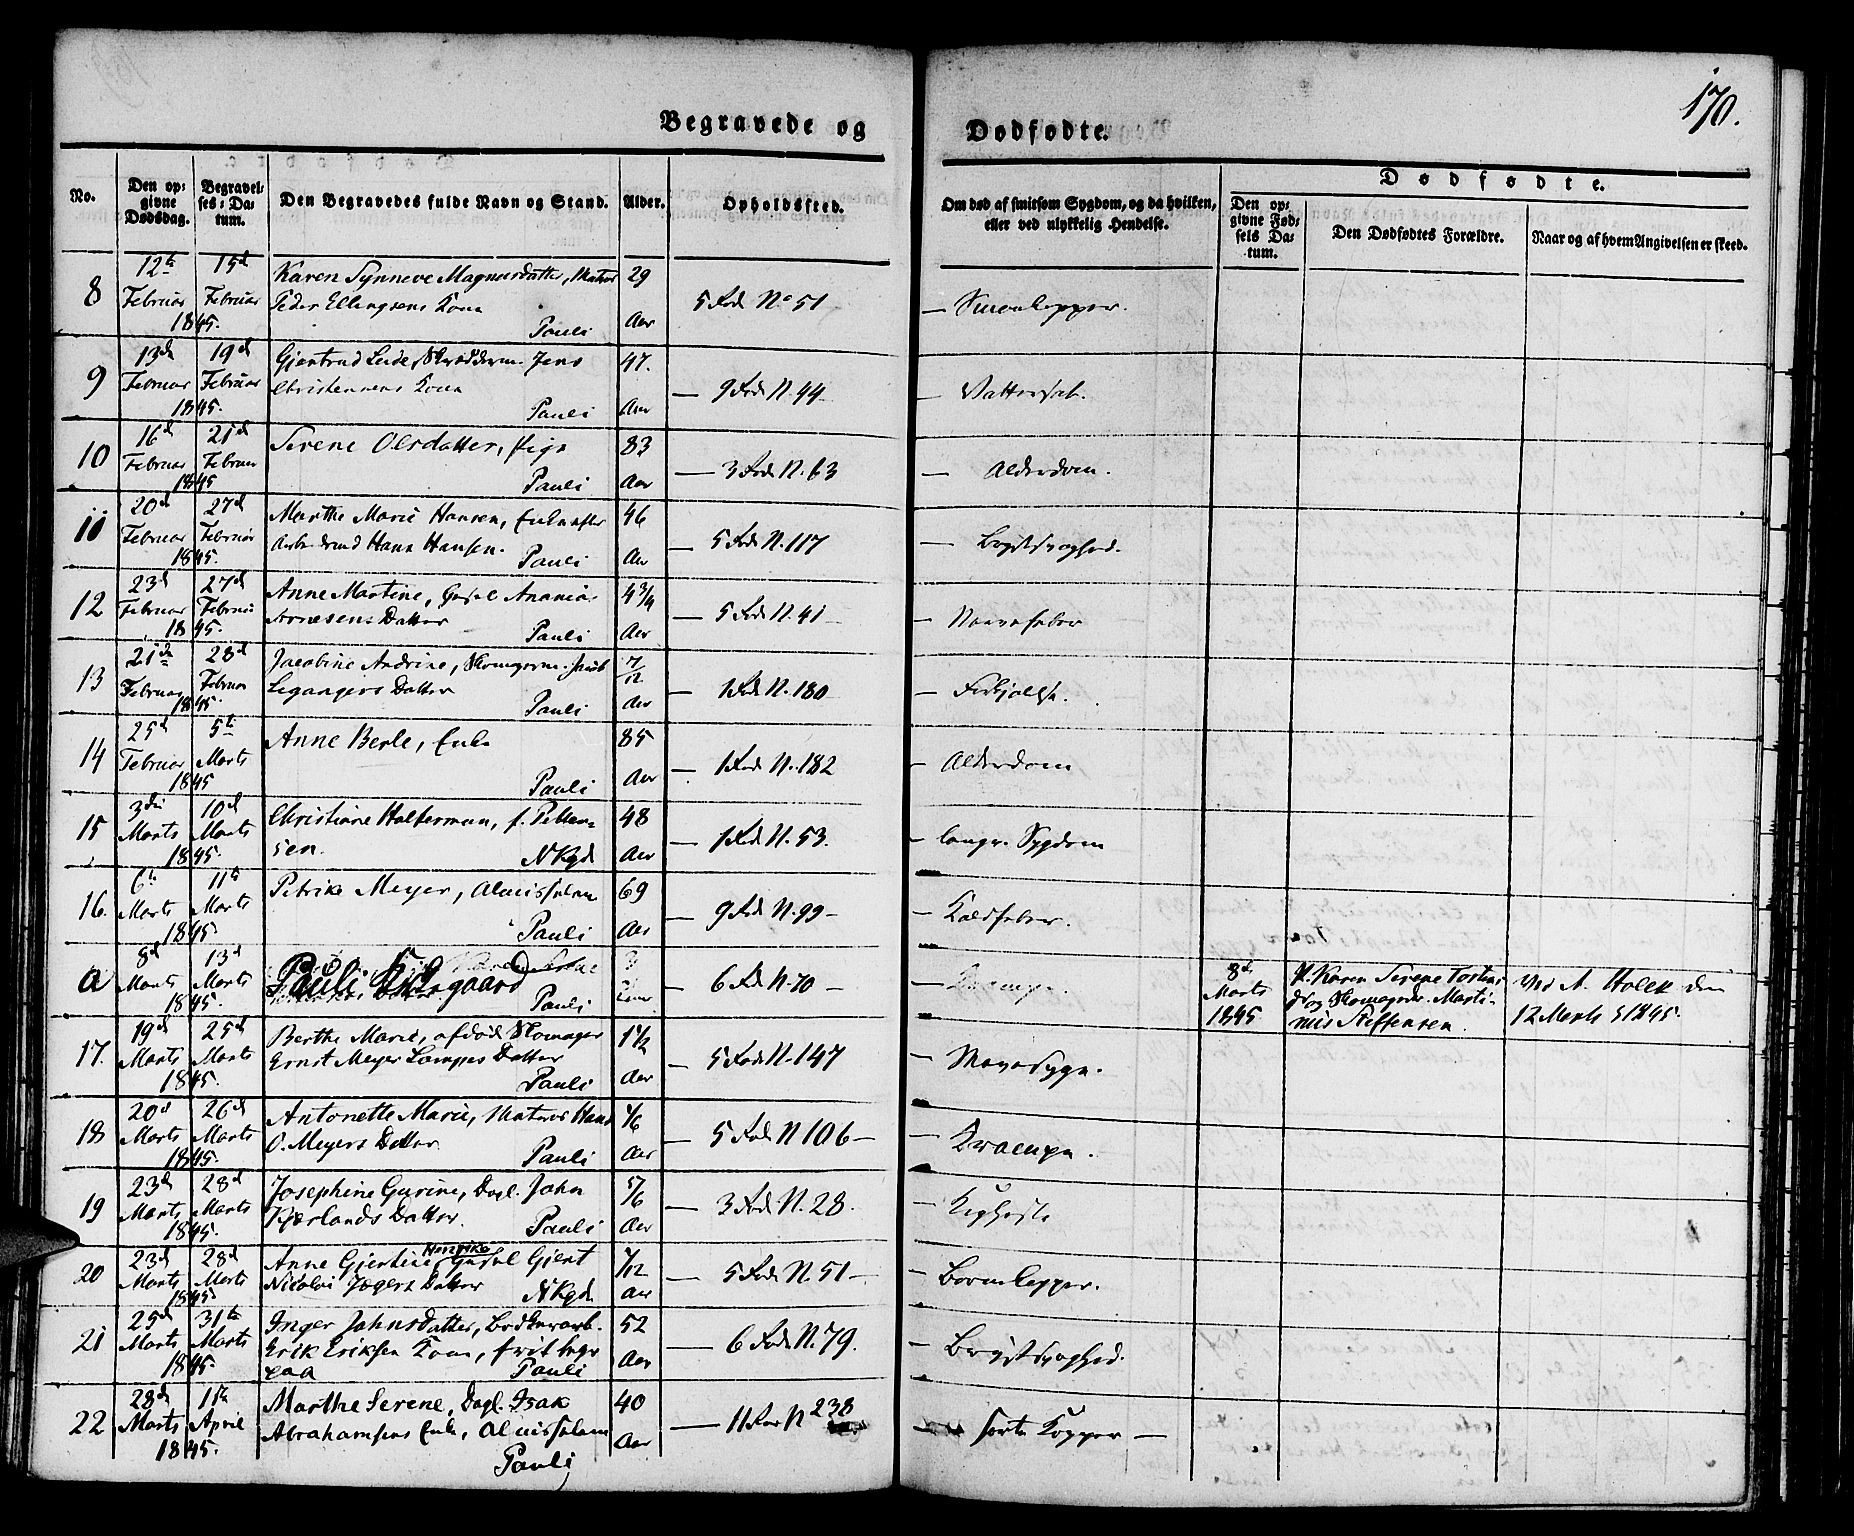 170.
Begravede og Dødfødte.
No.
Den opgivne Dødsdag.
Begravelses-Datum.
Den Begravedes fulde Navn og Stand.
Alder.
Opholdssted.
Om død af smitsom Sygdom, og da hvilken, eller ved ulykkelig Hendelse.
Dødfødte.
Den opgivne Fødsels Datum.
Den Dødfødtes Forældre.
Naar og af hvem Angivelsen er skeed.
8 12te Februar 1845. 15d Februar Karen Synneve Magnusdatter, Matros 29
Peder Ellingsens Kone Pauli Aar 5 Rode No 51 — Smaakopper.
9 13de Februar 1845. 19d Februar Gjertrud Jens 47.
Christensens Kone Pauli Aar — 9 Rode N. 44 — Vattersot.
10 16d Februar 1845 21d Februar Serene Olsdatter, Pige 83
Pauli Aar — 3 Rode N. 63 — Alderdom.
11 20d Februar 1845. 27d Februar Marthe Marie Hansen, Enke efter 46
Hans Hansen. Pauli Aar — 5 Rode N. 117 — Brystsvaghed.
12 23d Februar 1845. 27d Februar Anne Martine, Anania 4 3/4
Arnesens Datter Pauli Aar — 5 Rode N. 41 — Nervefeber
13 21de Februar 1845. 28d Februar Jacobine Andrine, Skomagerm. 7/12
Legangers Datter Pauli Aar — 1 Rode N. 180 —
14 25d Februar 1845 5te Marts Anne Berle, Enke 85
Pauli Aar — 1 Rode N. 182 — Alderdom
15 3die Marts 1845. 10d Marts Christiane Halterman, f. Petter- 48
sen. NKgd Aar — 1 Rode N. 53. — langv. Sygdom
16. 6te Marts 1845. 11te Marts Petrike Meyer, Almisselem 69
Pauli Aar — 9 Rode N. 99 — Koldfeber.
a 8d Marts 1845. 13d Marts
Pauli Kirkegaard
Pauli — 6 Rode N. 70 — Krampe. 8de Marts 1845 P. Karen Serene
og Skomagersv. Marti-
nus Steffensen. ved A. Holck den
12 Marts 1845.
17. 19d Marts 1845. 25d Marts Berthe Marie, afdød Skomager 1 1/2
Ernst Meyer Lampes Datter Pauli Aar — 5 Rode N. 147 — Mavesyge.
18 20d Marts 1845. 26d Marts Antonette Marie, Matros Hans 1/6
O. Meyers Datter Pauli Aar — 5 Rode N 106 — Krampe.
19 23d Marts 1845. 28d Marts Josephine Gurine, Dagl. John 5/6
Kjærlands Datter. Pauli Aar — 3 Rode N. 28. — Kighoste
20 23d Marts 1845. 28d Marts Anne Gjertine Henrike, Gjert 7/12
Nicolai Jøgers Datter NKgd Aar — 5 Rode N. 51 — Børnekopper.
21 25d Marts 1845. 31te Marts Inger Johnsdatter, Bødkerarb. 52
Erik Eriksen Kone,
Pauli Aar — 6 Rode N. 79. — Brystsvaghed.
22 28d Marts 1845. 1te April Marthe Serene, Dagl. Isak 40
Abrahamsens Enke, Almisselem Aar
Pauli — 11 Rode N 238 — sorte Kopper —